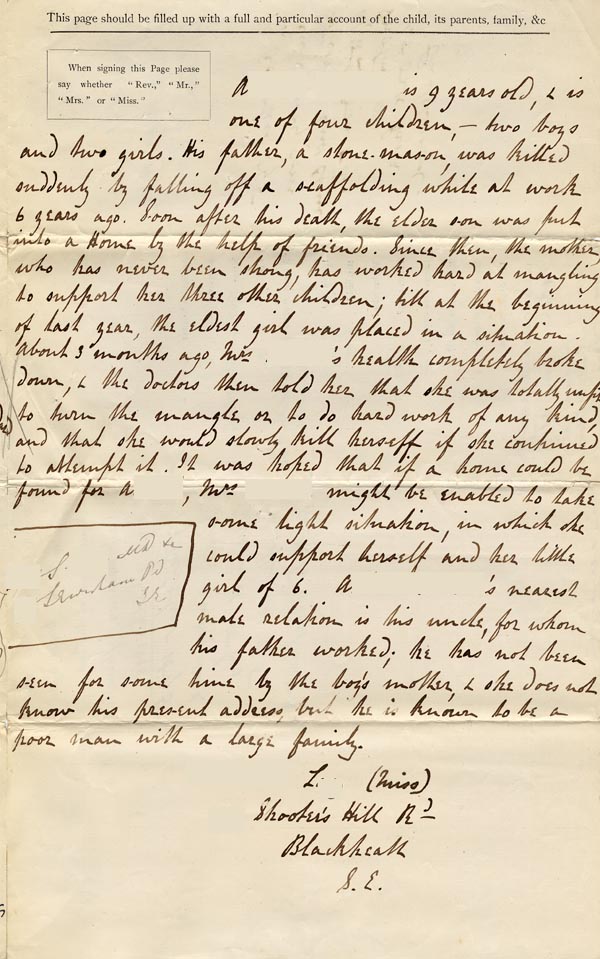 This page should be filled up with a full and particular account of the child, its parents, family, &c
When signing this Page please
say whether "Rev.," "Mr.,"
"Mrs." or "Miss."
A is 9 years old, & is
one of four children, – two boys
and two girls. His father, a stone-mason, was killed
suddenly by falling off a scaffolding while at work
6 years ago. Soon after his death, the elder son was put
into a Home by the help of friends. Since then, the mother,
who has never been strong, has worked hard at mangling
to support her three other children; till at the beginning
of last year, the eldest girl was placed in a situation.
About 3 months ago, Mrs 's health completely broke
down, & the doctors then told her that she was totally unfit
to turn the mangle or to do hard work of any kind,
and that she would slowly kill herself if she continued
to attempt it. It was hoped that if a home could be
found for A , Mrs might be enabled to take
some light situation, in which she
could support herself and her little
girl of 6. A 's nearest
male relation is his uncle, for whom
his father worked; he has not been
seen for some time by the boy's mother, & she does not
know his present address, but he is known to be a
poor man with a large family.
L. (Miss)
Shooter's Hill Rd
Blackheath
S.E.
S.
Lewisham Rd
S.E.